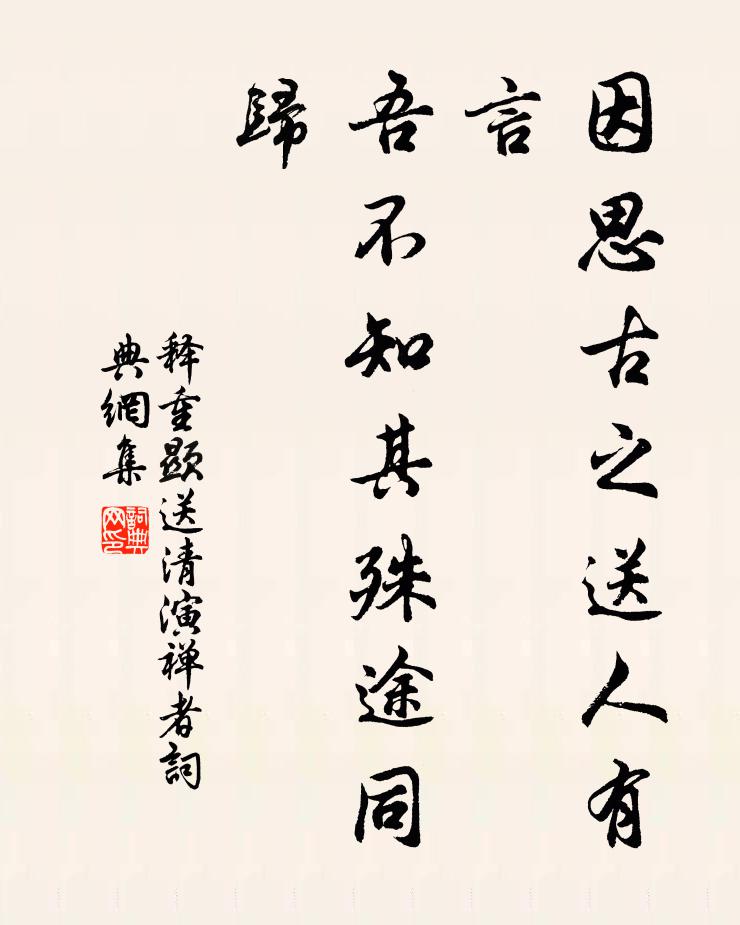 因思古之送人有
言
吾不知其殊途同
歸
释重顯送清演禅者詞
典網集
詞典
网印